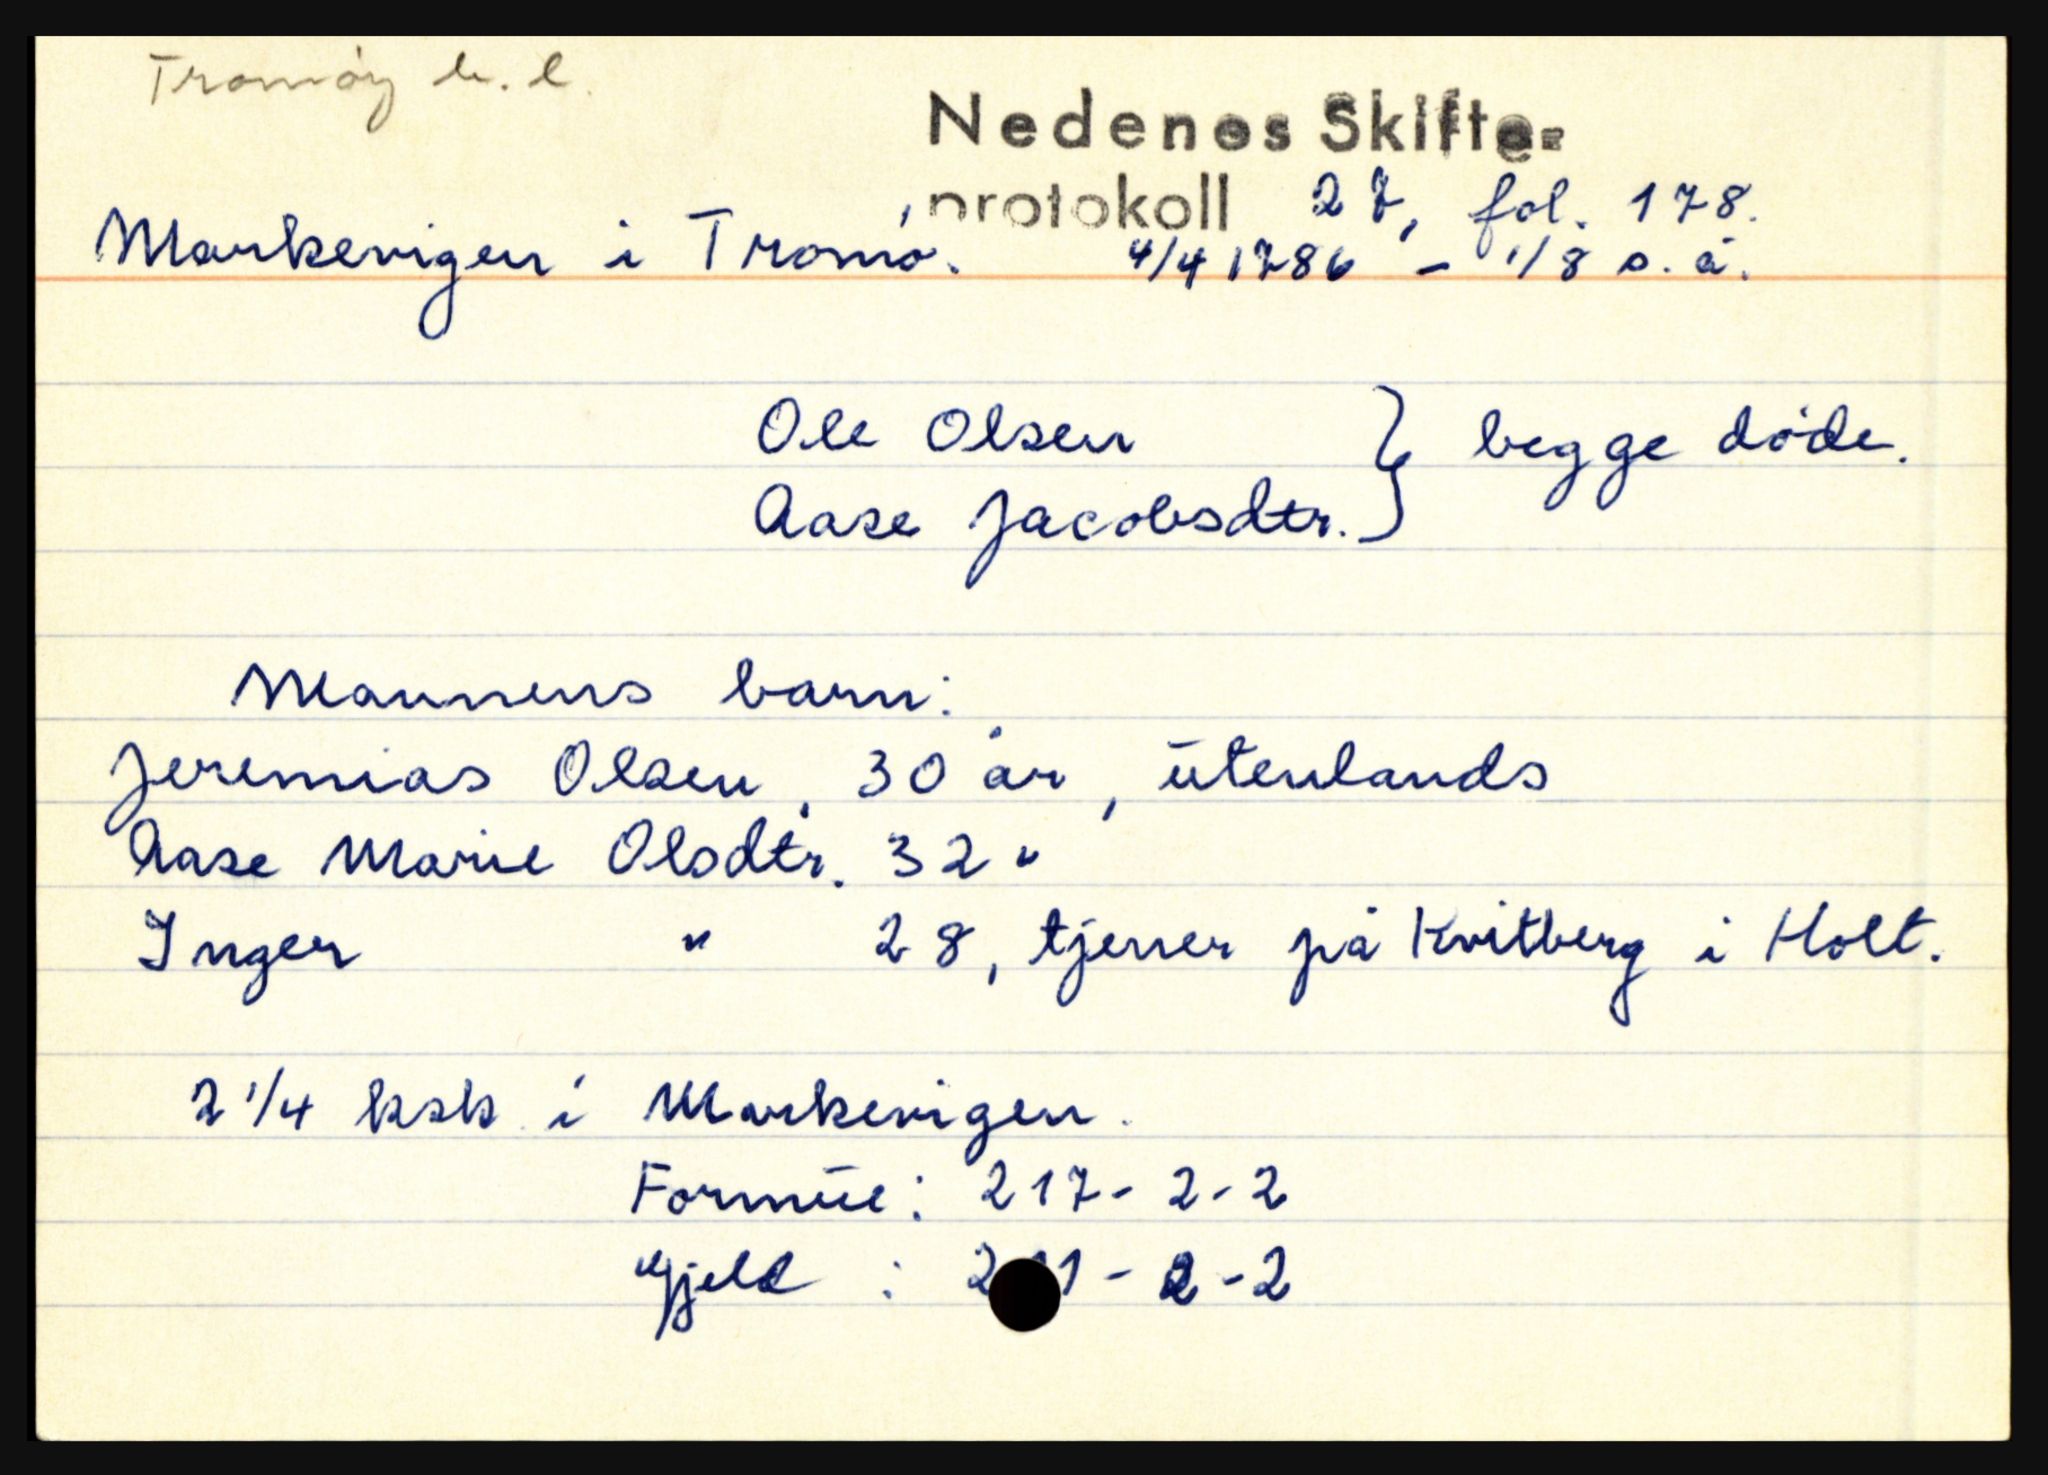 Tromøy h. l.
Nedenes Skifte-
protokoll 27, fol. 178.
Markevigen i Tromø. 4/4 1786 - 1/8 s. å.
Ole Olsen } begge døde.
Aase Jacobsdtr.
Mannens barn:
Jeremias Olsen, 30 år, utenlands
Aase Marie Olsdtr. 32 "
Inger " 28, tjener på Kvitberg i Holt.
2 1/4 ksk i Markevigen.
Formue: 217- 2-2
Gjeld : - 2-2